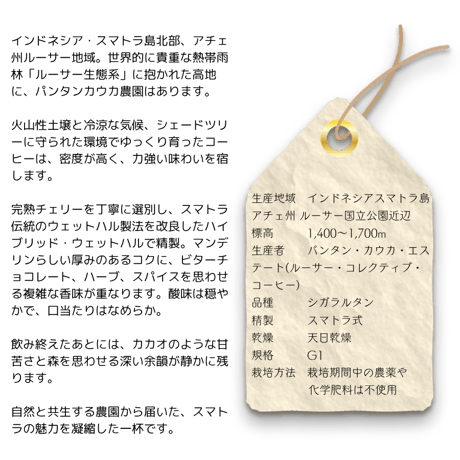 インドネシア・スマトラ島北部、アチェ
州ルーサー地域。世界的に貴重な熱帯雨
林「ルーサー生態系」に抱かれた高地
に、パンタンカウカ農園はあります。
火山性土壌と冷涼な気候、シェードツリ
ーに守られた環境でゆっくり育ったコー
ヒーは、密度が高く、力強い味わいを宿
します。
完熟チェリーを丁寧に選別し、スマトラ
伝統のウェットハル製法を改良したハイ
ブリッド・ウェットハルで精製。マンデ
リンらしい厚みのあるコクに、ビターチ
ョコレート、ハーブ、スパイスを思わせ
る複雑な香味が重なります。酸味は穏や
かで、口当たりはなめらか。
飲み終えたあとには、カカオのような甘
苦さと森を思わせる深い余韻が静かに残
ります。
自然と共生する農園から届いた、スマト
ラの魅力を凝縮した一杯です。
生産地域 インドネシアスマトラ島
アチェ州 ルーサー国立公園近辺
標高 1,400~1,700m
生産者 バンタン・カウカ・エス
テート(ルーサー・コレクティブ・
コーヒー)
品種 シガラルタン
精製 スマトラ式
乾燥 天日乾燥
規格 G1
栽培方法 栽培期間中の農薬や
化学肥料は不使用